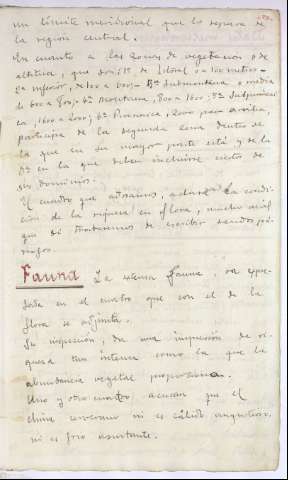 un límite meridional que lo separa de
la región central.
En cuanto a las zonas de vegetación o de
altitud, que son 1ª de litoral 0 a 100 metros-
2ª inferior, de 100 a 600- 3ª Submontana o media
de 600 a 800- 4ª montana, 800 a 1600- 5ª Subpirenaica
1600 a 2000; 6ª Pirenaica, 2000 para arriba,
participa de la segunda zona dentro de
la que en su mayor parte está y de la
3ª en la que deben incluirse ciertos de
sus dominios.
El cuadro que añadimos, aclara la condi-
ción de la riqueza en flora, mucho más
que si tratásemos de escribir sendos pá-
rrafos.
Fauna La extensa fauna, va expre-
sada en el cuadro que con el de la
flora se adjunta.
Su inspección, da una impresión de ri-
queza tan intensa como la que la
abundancia vegetal proporciona.
Uno y otro cuadro acusan que el
clima comarcano ni es cálido angustioso,
ni es frío asustante.